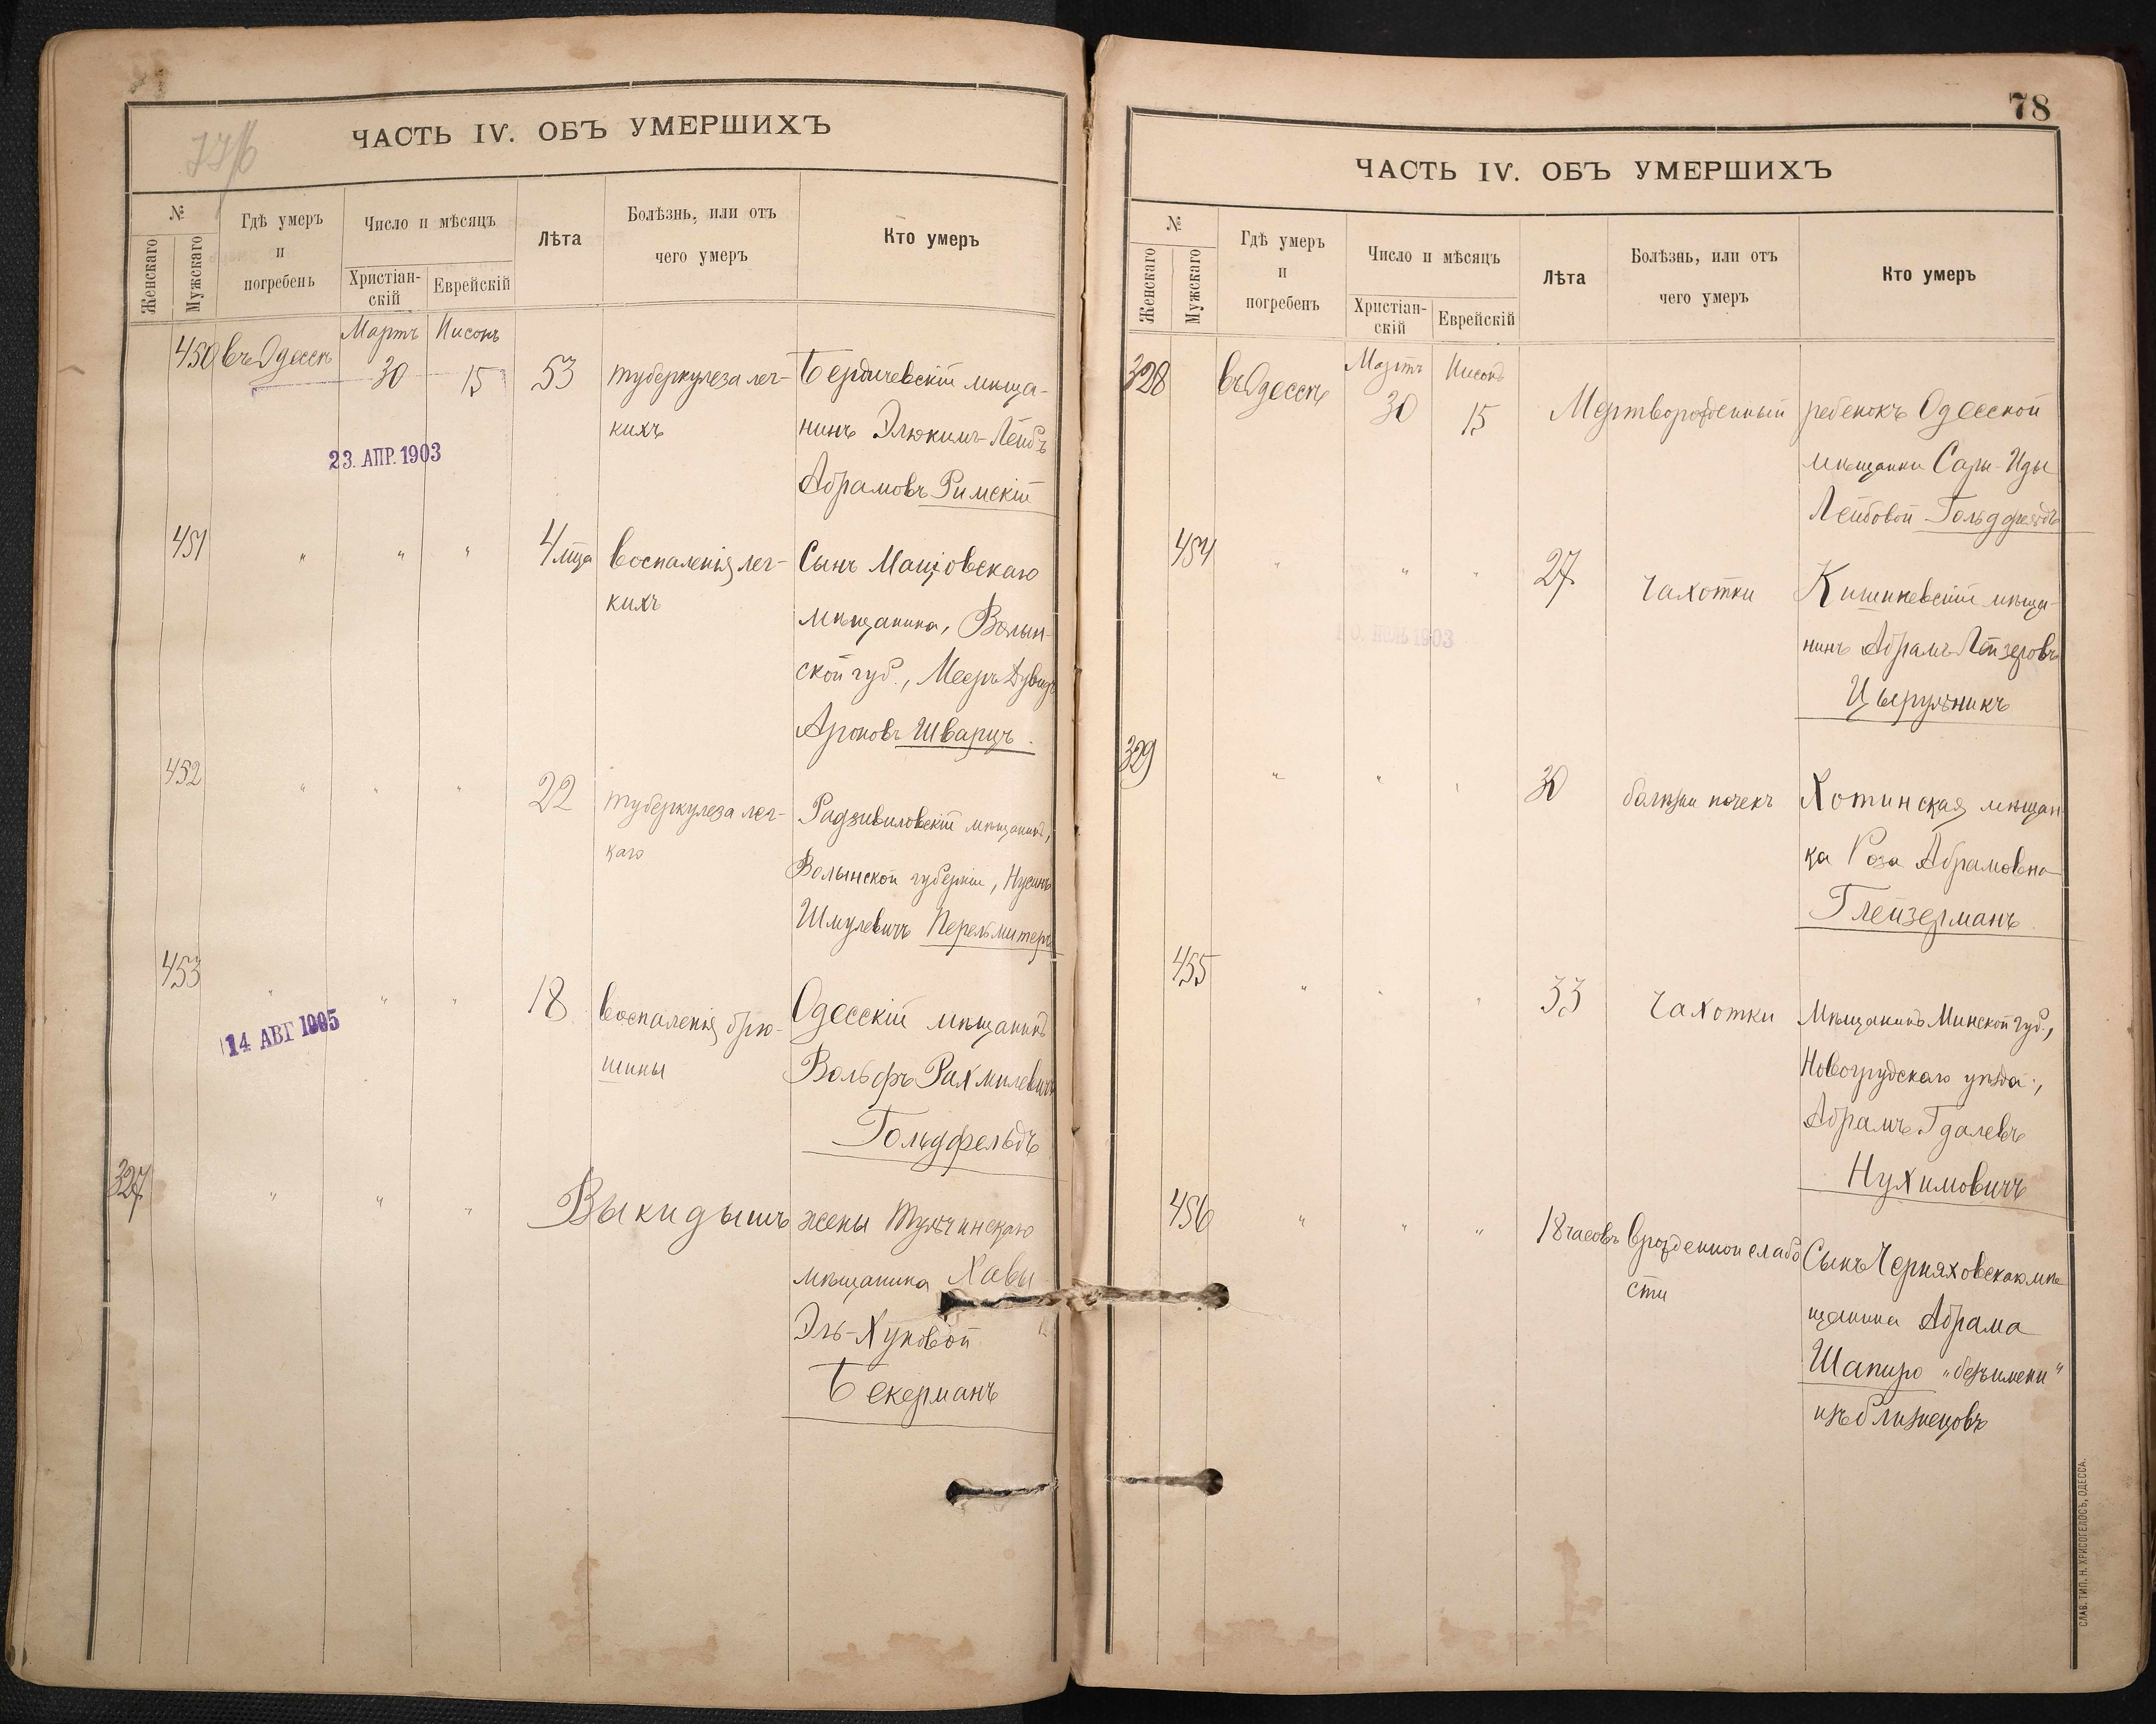 ЧАСТЬ IV. ОБЪ УМЕРШИХЪ
№
Женскаго
Мужскаго
Гдѣ умеръ
и
погребенъ
Число и мѣсяцъ
Христіан-
скій
Еврейскій
Лѣта
Болѣзнь, или отъ
чего умеръ
Кто умеръ
450 въ Одессѣ Мартъ 30 Нисонъ 15 53 туберкулеза лег- Бердичевскій мѣща-
кихъ нинъ Элюкимъ-Лейбъ
23. АПР. 1903
Абрамовъ Римскій
451 " " " 4 мѣсца воспаленія лег- Сынъ Маціовскаго
кихъ мѣщанина, Волын-
ской губ., Мееръ Дувидъ
Ароновъ Шварцъ.
452 " " " 22 туберкулеза лег- Радзивиловскій мѣщанинъ,
каго Волынской губерніи, Нусинъ
Шмулевичъ Перельмитеръ
453 " " " 18 воспаленія брю- Одесскій мѣщанинъ
14 АВГ 1905
шины Вольфъ Рахмилевичъ
Гольдфельдъ
327 " " " Выкидышъ жены Тульчинскаго
мѣщанина Хавы
Эль-Хуновой
Бекерманъ
78
ЧАСТЬ IV. ОБЪ УМЕРШИХЪ
№
Женскаго
Мужскаго
Гдѣ умеръ
и
погребенъ
Число и мѣсяцъ
Христіан-
скій
Еврейскій
Лѣта
Болѣзнь, или отъ
чего умеръ
Кто умеръ
328 въ Одессѣ Мартъ 30 Нисонъ 15 Мертворожденный ребенокъ Одесской
мѣщанки Сары-Иды
Лейбовой Гольдфельдъ
454 " " " 27 чахотки Кишиневскій мѣща-
нинъ Абрамъ Лейзеровъ
1903
Цырульникъ
329 " " " 30 болѣзни почекъ Хотинская мѣщан
ка Роза Абрамовна
Глейзерманъ
455 " " " 33 чахотки Мѣщанинъ Минской губ.,
Новогрудскаго уѣзда,
Абрамъ Гдалевъ
Нухимовичъ
456 " " " 18 часовъ врожденной слабо Сынъ Черняховскаго мѣ
сти щанина Абрама
Шапиро "безъ имени"
изъ близнецовъ
СЛАВ. ТИП. Н. ХРИСОГЕЛОСЪ, ОДЕССА.